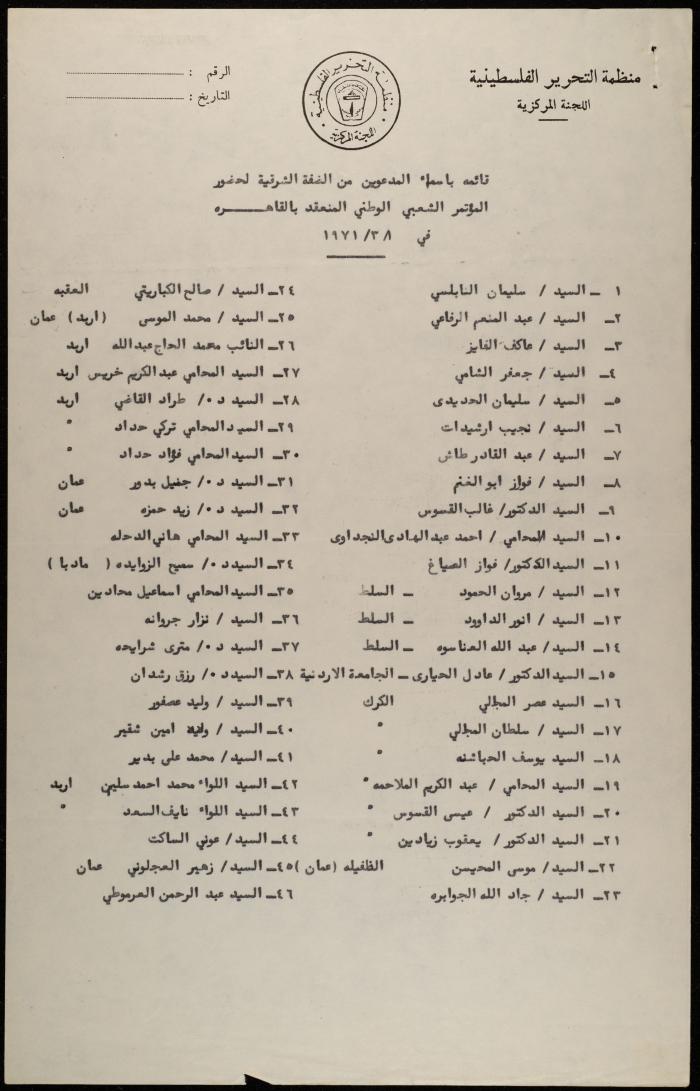 منظمة التحرير الفلسطينية
اللجنة المركزية
منظمة التحرير الفلسطينية
اللجنة المركزية
الرقم :
التاريخ :
قائمه باسماء المدعوين من الضفة الشرقية لحضور
المؤتمر الشعبي الوطني المنعقد بالقاهـــره
في ٣٨/ ١٩٧١
١ ــ السيد / سليمان النابلسي
٢ــ السيد / عبد المنعم الرفاعي
٣ــ السيد / عاكف الفايز
٤ــ السيد / جعفر الشامي
٥ــ السيد / سليمان الحديدى
٦ــ السيد / نجيب ارشيدات
٧ــ السيد / عبد القادر طاش
٨ــ السيد / فواز ابو الغنم
٩ــ السيد الدكتور/ غالب القسوس
١٠ــ السيد المحامي / احمد عبد الهادى النجداوى
١١ــ السيد الدكتور/ فواز الصياغ
١٢ــ السيد / مروان الحمود ــ السلط
١٣ــ السيد / انور الداوود ــ السلط
١٤ــ السيد/ عبد الله العناسوه ــ السلط
١٥ــ السيد الدكتور/ عادل الحيارى ــ الجامعة الاردنية
١٦ــ السيد عصر المجالي الكرك
١٧ــ السيد / سلطان المجالي "
١٨ــ السيد يوسف الحباشنه "
١٩ــ السيد المحامي / عبد الكريم الملاحمه "
٢٠ــ السيد الدكتور / عيسى القسوس "
٢١ــ السيد الدكتور / يعقوب زيادين "
٢٢ــ السيد/ موسى المحيسن الطفيله (عمان)
٢٣ــ السيد / جاد الله الجوابره
٢٤ــ السيد / صالح الكباريتي العقبه
٢٥ــ السيد / محمد الموسى (اربد) عمان
٢٦ــ النائب محمد الحاج عبدالله اربد
٢٧ــ السيد المحامي عبد الكريم خريس اربد
٢٨ــ السيد د ٠/ طراد القاضي اربد
٢٩ــ السيد المحامي تركي حداد "
٣٠ــ السيد المحامي فؤاد حداد "
٣١ــ السيد د ٠/ جميل بدور عمان
٣٢ــ السيد د ٠/ زيد حمزه عمان
٣٣ــ السيد المحامي هاني الدحله
٣٤ــ السيد د ٠/ سميح الزوايده ( مادبا )
٣٥ــ السيد المحامي اسماعيل محادين
٣٦ــ السيد / نزار جردانه
٣٧ــ السيد د ٠/ مترى شرايحه
٣٨ــ السيد د ٠/ رزق رشدان
٣٩ــ السيد / وليد عصفور
٤٠ــ السيد / امين شقير
٤١ــ السيد/ محمد على بدير
٤٢ــ السيد اللواء محمد احمد سليم اربد
٤٣ــ السيد اللواء نايف السعد "
٤٤ــ السيد/ عوني الساكت
٤٥ــ السيد/ زهير العجلوني عمان
٤٦ــ السيد عبد الرحمن العرموطي